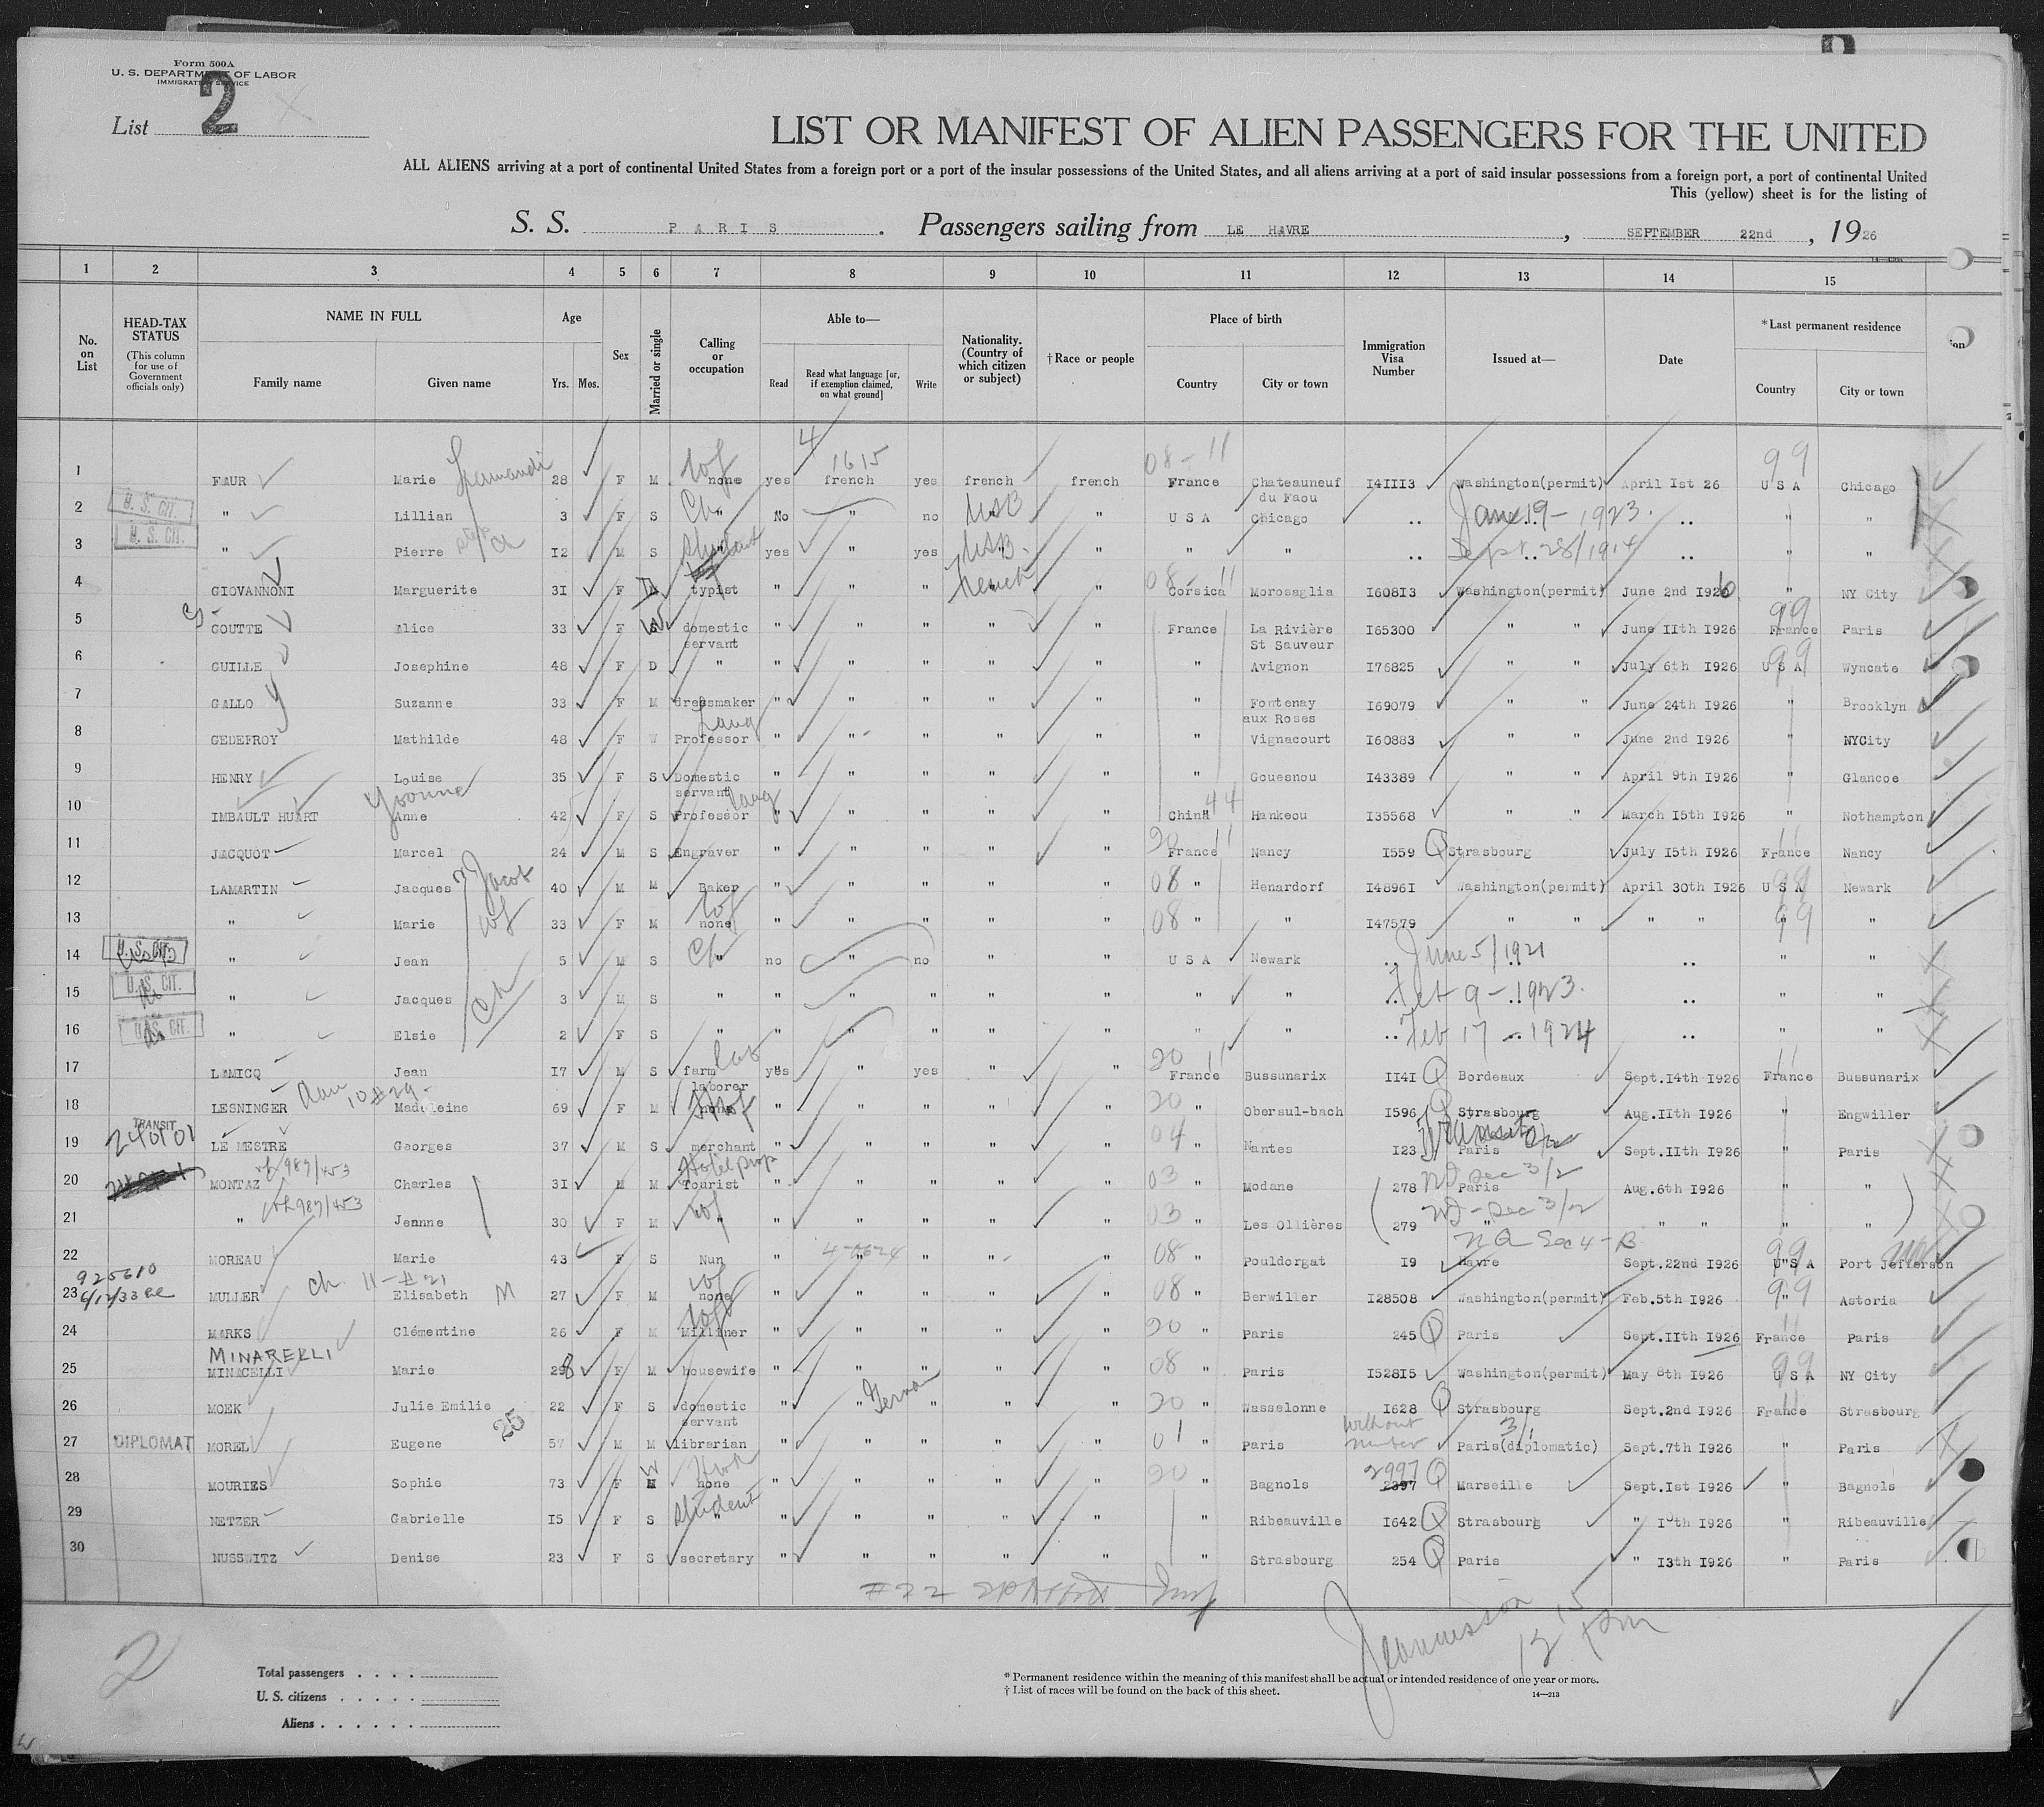 Form 500A
U. S. DEPARTMENT OF LABOR
IMMIGRATION SERVICE
List 2
LIST OR MANIFEST OF ALIEN PASSENGERS FOR THE UNITED
ALL ALIENS arriving at a port of continental United States from a foreign port or a port of the insular possessions of the United States, and all aliens arriving at a port of said insular possessions from a foreign port, a port of continental United
This (yellow) sheet is for the listing of
S. S. PARIS. Passengers sailing from LE HAVRE, SEPTEMBER 22nd, 1926
1 2 3 4 5 6 7 8 9 10 11 12 13 14 15
No. on List
HEAD-TAX STATUS (This column for use of Government officials only)
NAME IN FULL Family name Given name
Age Yrs. Mos.
Sex
Married or single
Calling or occupation
Able to— Read Read what language [or, if exemption claimed, on what ground] Write
Nationality. (Country of which citizen or subject)
†Race or people
Place of birth Country City or town
Immigration Visa Number
Issued at—
Date
*Last permanent residence Country City or town
4 1615 08-11 99
1 FAUR Marie 28 F M wf none yes french yes french french France Chateauneuf du Faou I4III3 Washington(permit) April Ist 26 U S A Chicago
2 U. S. CIT. " Lillian 3 F S Ch " No " no USB " U S A Chicago .. Jan 19-1923. .. " "
3 U. S. CIT. " Pierre I2 M S student yes " yes USB " " " .. Sept 28/1914 .. " "
4 GIOVANNONI Marguerite 3I F D typist " " " french " 08-11 Corsica Morosaglia I608I3 Washington(permit) June 2nd I926 " NY City
5 GOUTTE Alice 33 F W domestic servant " " " " " France La Rivière St Sauveur I65300 " " June IIth I926 99 France Paris
6 GUILLE Josephine 48 F D " " " " " " " Avignon I76825 " " July 6th I926 99 U S A Wyncate
7 GALLO Suzanne 33 F M dressmaker " " " " " " Fontenay aux Roses I69079 " " June 24th I926 " Brooklyn
8 GEDEFROY Mathilde 48 F W Lang Professor " " " " " " Vignacourt I60883 " " June 2nd I926 " NYCity
9 HENRY Louise 35 F S Domestic servant " " " " " " Gouesnou I43389 " " April 9th I926 " Glancoe
10 IMBAULT HUART Yvonne Anne 42 F S Lang Professor " " " " " China 44 Hankeou I35568 " " March I5th I926 " Nothampton
11 JACQUOT Marcel 24 M S Engraver " " " " " 20 11 France Nancy I559 Strasbourg July I5th I926 11 France Nancy
12 LAMARTIN Jacques Jacob 40 M M Baker " " " " " 08 " Henardorf I4896I Washington(permit) April 30th I926 99 U S A Newark
13 " Marie wf 33 F M wf none " " " " " 08 " " I47579 " " " " 99 " "
14 U. S. CIT. " Jean 5 M S Ch " no " no " " U S A Newark .. June 5/1921 .. " "
15 U. S. CIT. " Jacques ch 3 M S " " " " " " " " .. Oct 9-1923. .. " "
16 U. S. CIT. " Elsie 2 F S " " " " " " " " .. Feb 17-1924 .. " "
17 LAMICQ Jean I7 M S farm laborer yes " yes " " 20 11 France Bussunarix II4I Bordeaux Sept.I4th I926 11 France Bussunarix
18 LESNINGER Madeleine 69 F M none " " " " " 20 " Obersul-bach I596 Strasbourg Aug.IIth I926 " Engwiller
19 TRANSIT LE MESTRE Georges 37 M S merchant " " " " " 04 " Nantes I23 Transit Paris Sept.IIth I926 " Paris
20 MONTAZ 989/453 Charles 3I M M Hotel prop Tourist " " " " " 03 Modane 278 Sec 3/2 Paris Aug.6th I926 " "
21 " 989/453 Jeanne 30 F M wf " " " " " " 03 Les Ollières 279 Sec 3/2 " " " " "
22 MOREAU Marie 43 F S Nun " " " " " 08 " Pouldorgat I9 N Q Sec 4-B Havre Sept.22nd I926 99 U S A Port Jefferson
925610
23 6/12/33 MULLER ch. 11-#21 Elisabeth M 27 F M wf none " " " " " 08 " Berwiller I28508 Washington(permit) Feb.5th I926 99 " Astoria
24 MARKS Clémentine 26 F M Milliner " " " " " 20 " Paris 245 Paris Sept.IIth I926 11 France Paris
MINARELLI
25 MINACELLI Marie 28 F M housewife " " " " " 08 " Paris I528I5 Washington(permit) May 8th I926 99 U S A NY City
26 MOEK Julie Emilie 22 F S domestic servant " " German " " " 20 " Wasselonne I628 Strasbourg Sept.2nd I926 11 France Strasbourg
27 DIPLOMAT MOREL Eugene 25 57 M M librarian " " " " " 01 " Paris without number 3/1 Paris(diplomatic) Sept.7th I926 " Paris
28 MOURIES Sophie 73 F W none " " " " " 20 " Bagnols 2997 2397 Marseille Sept.Ist I926 " Bagnols
29 NETZER Gabrielle I5 F S student " " " " " " " Ribeauville I642 Strasbourg " I3th I926 " Ribeauville
30 NUSSWITZ Denise 23 F S secretary " " " " " " Strasbourg 254 Paris " I3th I926 " Paris
2
Total passengers . . . .
U. S. citizens . . . . .
Aliens . . . . . .
* Permanent residence within the meaning of this manifest shall be actual or intended residence of one year or more.
† List of races will be found on the back of this sheet.
14—213